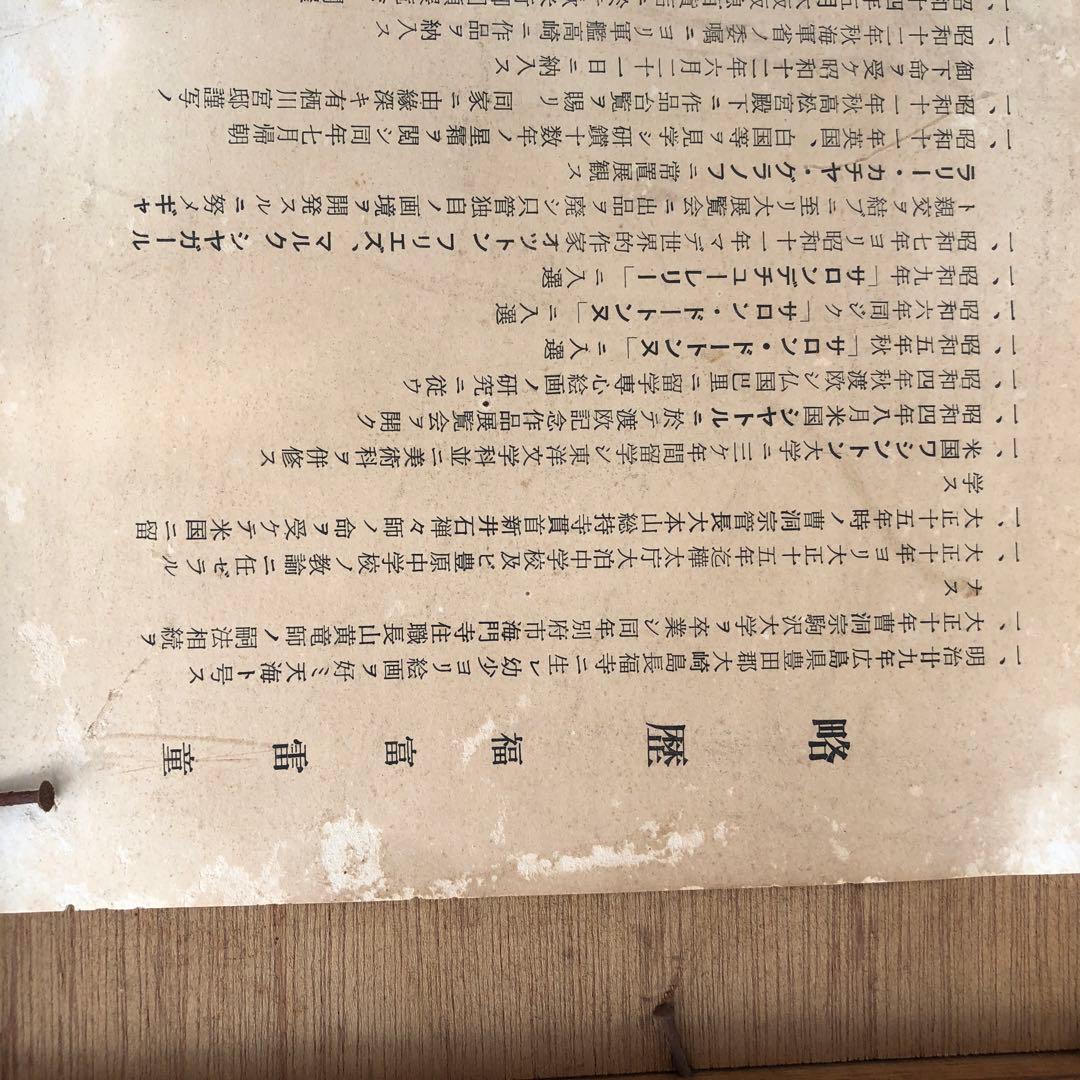 略歴 福富雷童
一、明治廿九年広島県豊田郡大崎島長福寺ニ生レ幼少ヨリ絵画ヲ好ミ天海ト号ス
一、大正十年曹洞宗駒沢大学ヲ卒業シ同年別府市海門寺住職長山黄竜師ノ嗣法相続ヲ
ナス
一、大正十年ヨリ大正十五年迄樺太庁大泊中学校及ビ豊原中学校ノ教諭ニ任ゼラル
一、大正十五年時ノ曹洞宗管長大本山総持寺貫首新井石禅々師ノ命ヲ受ケテ米国ニ留
学ス
一、米国ワシントン大学ニ三ケ年間留学シ東洋文学科並ニ美術科ヲ併修ス
一、昭和四年八月米国シヤトルニ於テ渡欧記念作品展覧会ヲ開ク
一、昭和四年秋渡欧シ仏国巴里ニ留学専心絵画ノ研究ニ従ウ
一、昭和五年秋「サロン・ドートンヌ」ニ入選
一、昭和六年同ジク「サロン・ドートンヌ」ニ入選
一、昭和九年「サロンデチユーレリー」ニ入選
一、昭和七年ヨリ昭和十一年マデ世界的作家オツトンフリエズ、マルクシヤガール
ト親交ヲ結ブニ至リ大展覧会ニ出品ヲ廃シ只管独自ノ画境ヲ開発スルニ努メギャ
ラリー・カチヤ・グラノフニ常置展観ス
一、昭和十一年英国、白国等ヲ見学シ研鑽十数年ノ星霜ヲ閲シ同年七月帰朝
一、昭和十一年秋高松宮殿下ニ作品台覧ヲ賜リ 同家ニ由緣深キ有栖川宮邸謹写ノ
御下命ヲ受ケ昭和十二年六月二十一日ニ納入ス
一、昭和十二年秋海軍省ノ委嘱ニヨリ軍艦高崎ニ作品ヲ納入ス